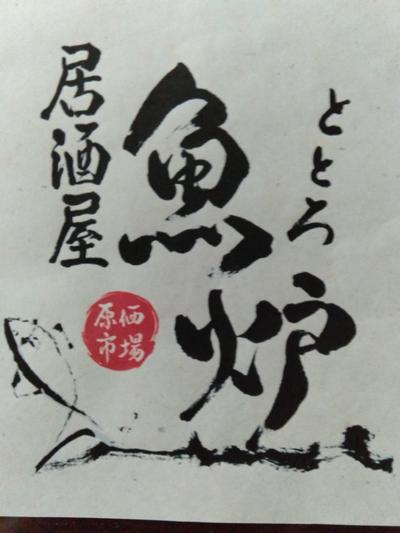 ととろ
魚炉
居酒屋
原価
市場